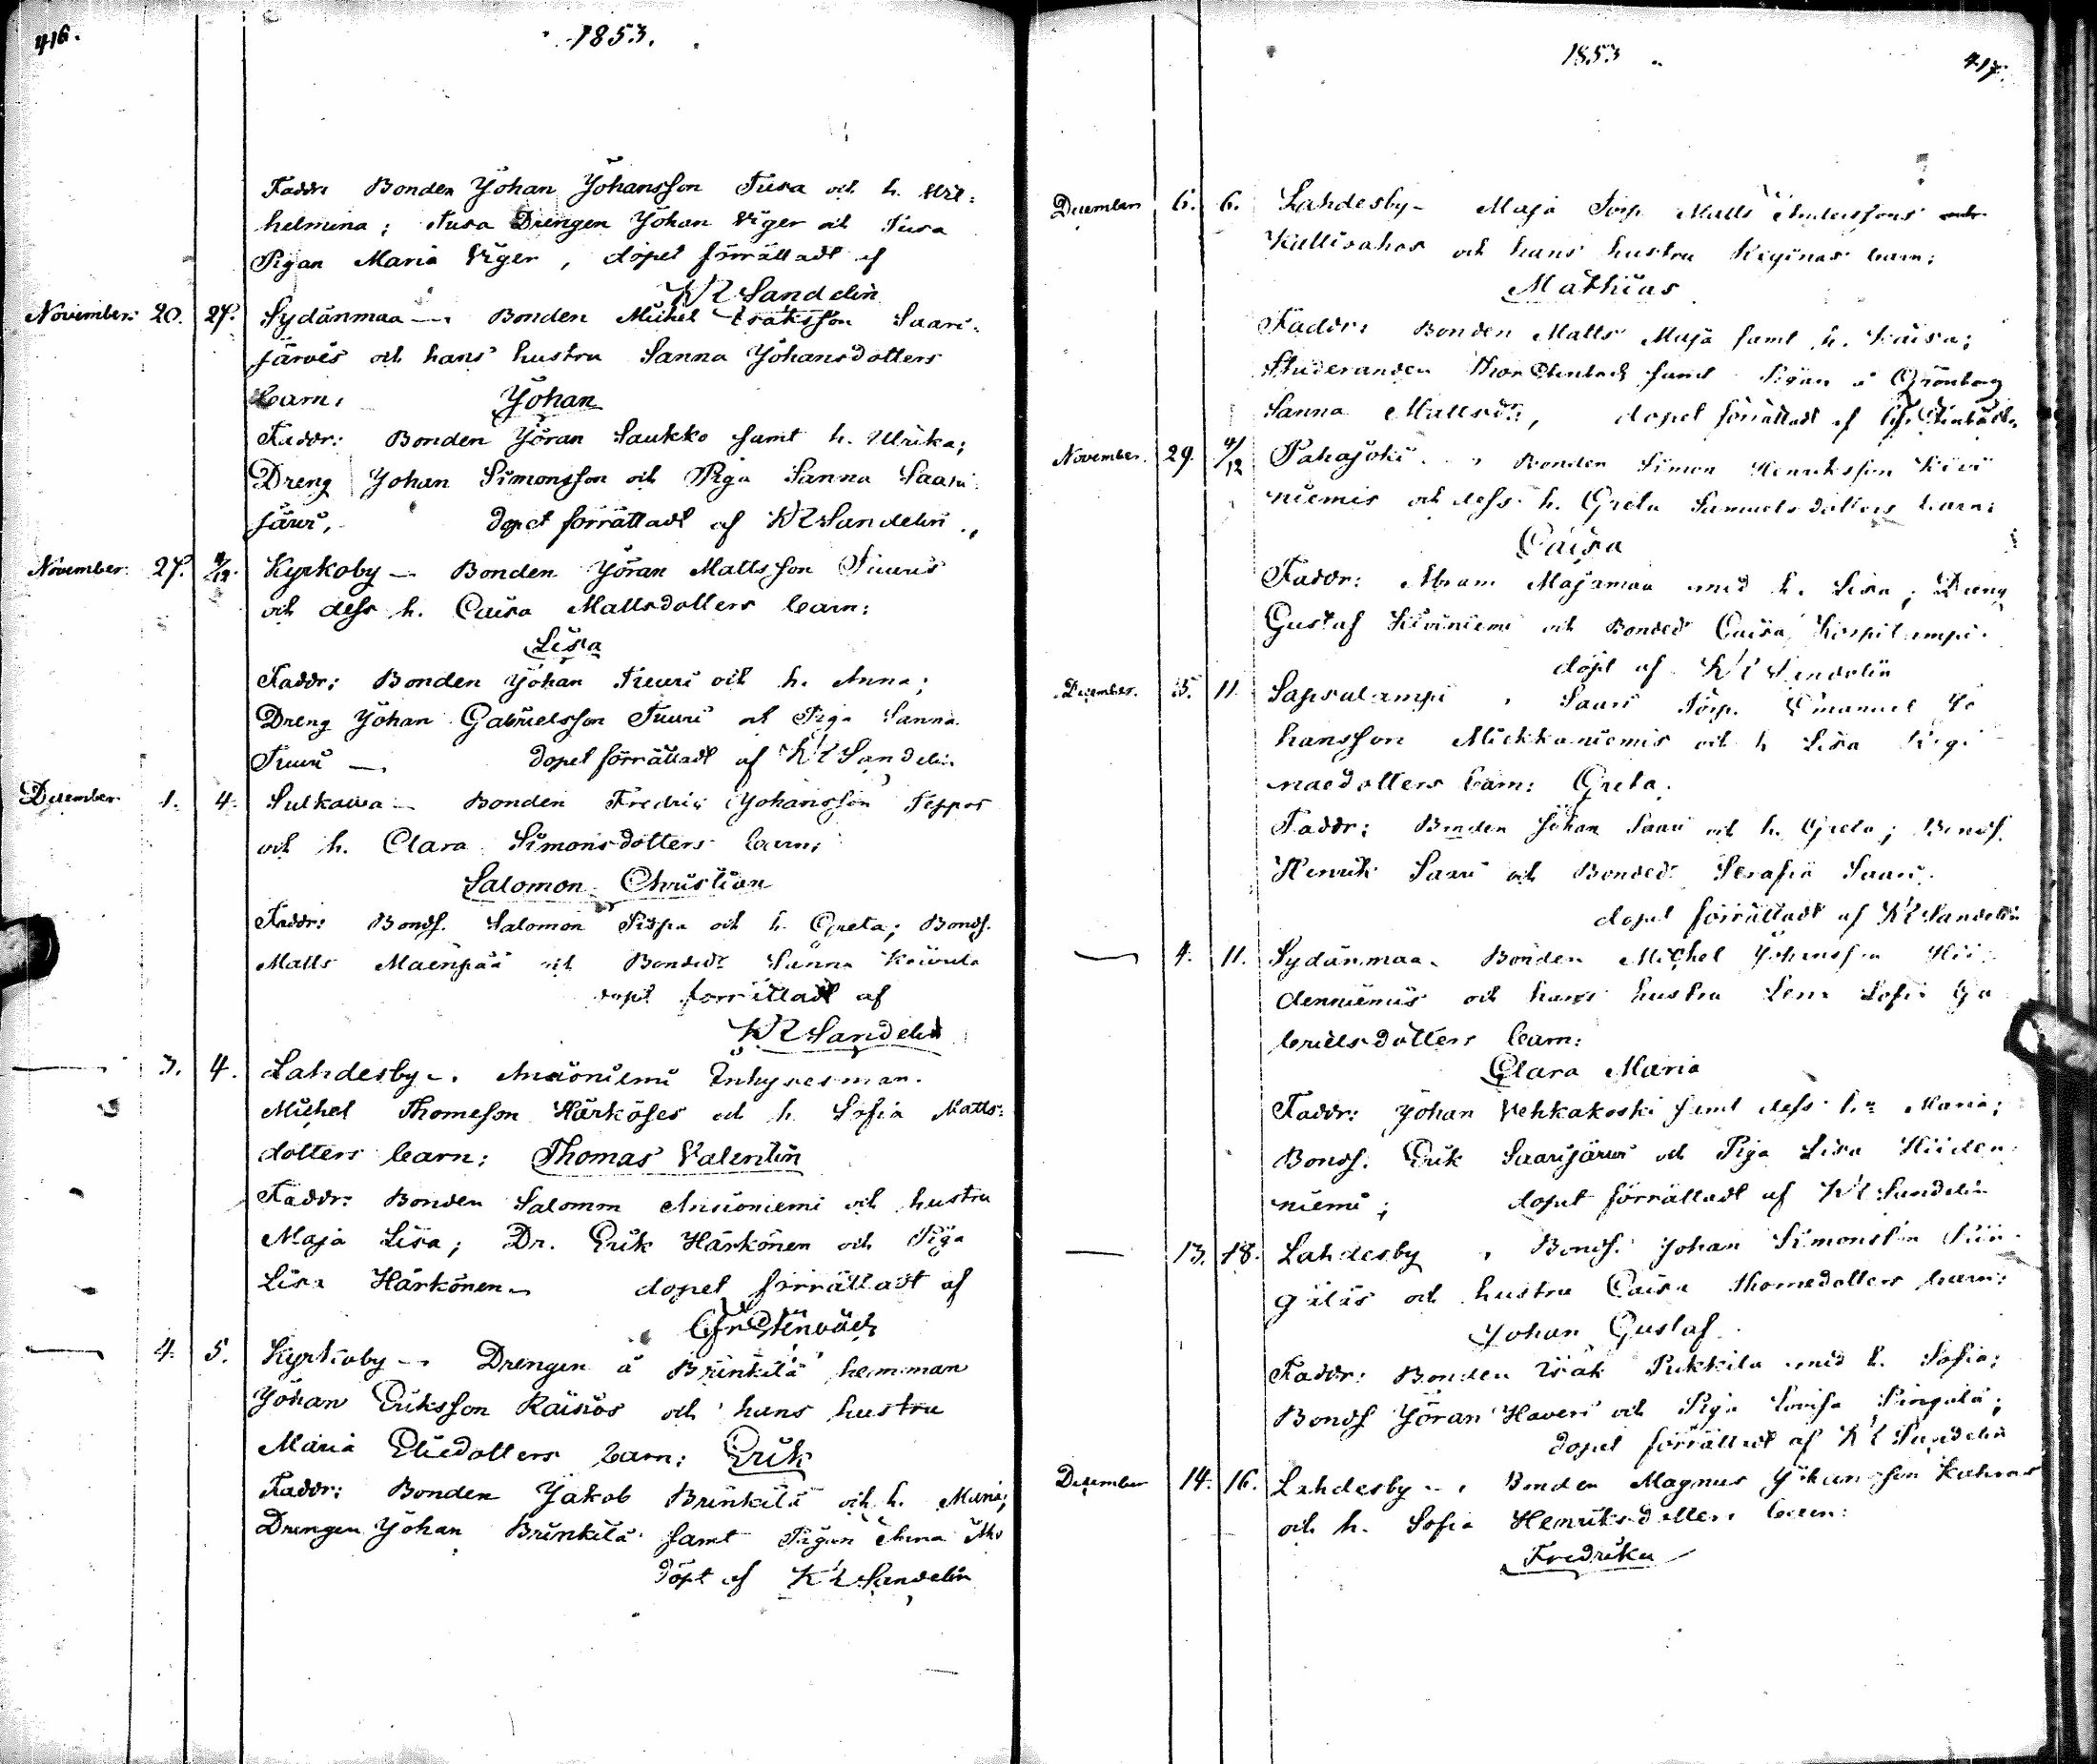 416.
1853.
Faddr: Bonden Johan Johansson Tusa och h. Wil=
helmina; Tusa Drengen Johan Viger och Tusa
Pigan Maria Viger, dopet förrättadt af
KR Sandelin
November. 20. 27. Sydänmaa — Bonden Michel Isaksson Saari-
järvis och hans hustru Sanna Johansdotters
barn: Johan
Faddr: Bonden Jöran Saukko samt h. Ulrika;
Dreng Johan Simonsson och Piga Sanna Saari
järvi, dopet förrättadt af KR Sandelin.,
November. 27. 4/12. Kyrkoby — Bonden Jöran Mattsson Tuuris
och dess h. Caisa Mattsdotters barn:
Lisa
Faddr: Bonden Johan Tuuri och h. Anna;
Dreng Johan Gabrielsson Tuuri och Piga Sanna
Tuuri — dopet förrättadt af KR Sandelin
December 1. 4. Sulkawa — Bonden Fredric Johansson Seppos
och h. Clara Simonsdotters barn:
Salomon Christian
Faddr: Bonds. Salomon och h. Greta; Bonds.
Matts Mäenpää och Bondedr Sanna Koivula
dopet förrättadt af
KR Sandelin
— 3. 4. Lahdesby — Ansioniemi Inhysesman
Michel Thomeson Härköses och h. Sofia Matts=
dotters barn: Thomas Valentin
Faddr: Bonden Salomon Ansioniemi och hustru
Maja Lisa; Dr. Erik Härkönen och Piga
Lisa Härkönen — dopet förrättadt af
Stenbäck
— 4. 5. Kyrkoby — Drengen å Brinkilä hemman
Johan Eriksson Räisiös och hans hustru
Maria Eliedotters barn: Erik
Faddr: Bonden Jakob Brinkilä och h. Maria;
Drengen Johan Brinkilä samt Pigan Anna
döpt af KR Sandelin
1853
417.
December 6. 6. Lahdesby — Maja Torp. Matts Anderssons
Kallisahos och hans hustru Reginas barn:
Mathias
Faddr: Bonden Matts Maja samt h. Kaisa;
Studeranden Thor Stenbäck samt Pigan å Grönberg
Sanna Mattsdr, dopet förrättadt af Stenbäck
November. 29. 4/12 Pahajoki — Bonden Simon Henriksson Kivi
niemis och dess h. Greta Samuelsdotters barn:
Caisa
Faddr: Abram Majamaa med h. Lisa; Dreng
Gustaf Kiviniemi och Bonded Caisa
döpt af KR Sandelin
December. 5. 11. Sapsalampi, Saari Torp. Emanuel Jo
hansson Miekkaniemis och h Lisa Regi
naedotters barn: Greta.
Faddr: Bonden Johan Saari och h. Greta; Bonds.
Henrik Saari och Bonded. Serafia Saari.
dopet förrättadt af KR Sandelin
— 4. 11. Sydänmaa. Bonden Michel Johansson Hii-
denniemis och hans hustru Lena Sofia Ga
brielsdotters barn:
Clara Maria
Faddr: Johan Vehkakoski samt dess h:u Maria;
Bonds. Erik Saarijärvi och Piga Lisa Hiiden
niemi; dopet förrättadt af KR Sandelin
— 13. 18. Lahdesby, Bonds. Johan Simonsson Piin-
gäläs och hustru Caisa Thomedotters barn:
Johan Gustaf.
Faddr: Bonden Isak Pukkila med h. Sofia;
Bonds Jöran Haveri och Piga Lovisa Pingälä;
dopet förrättadt af KR Sandelin
December 14. 16. Lahdesby — Bonden Magnus Johansson
och h. Sofia Henriksdotters barn:
Fredrika